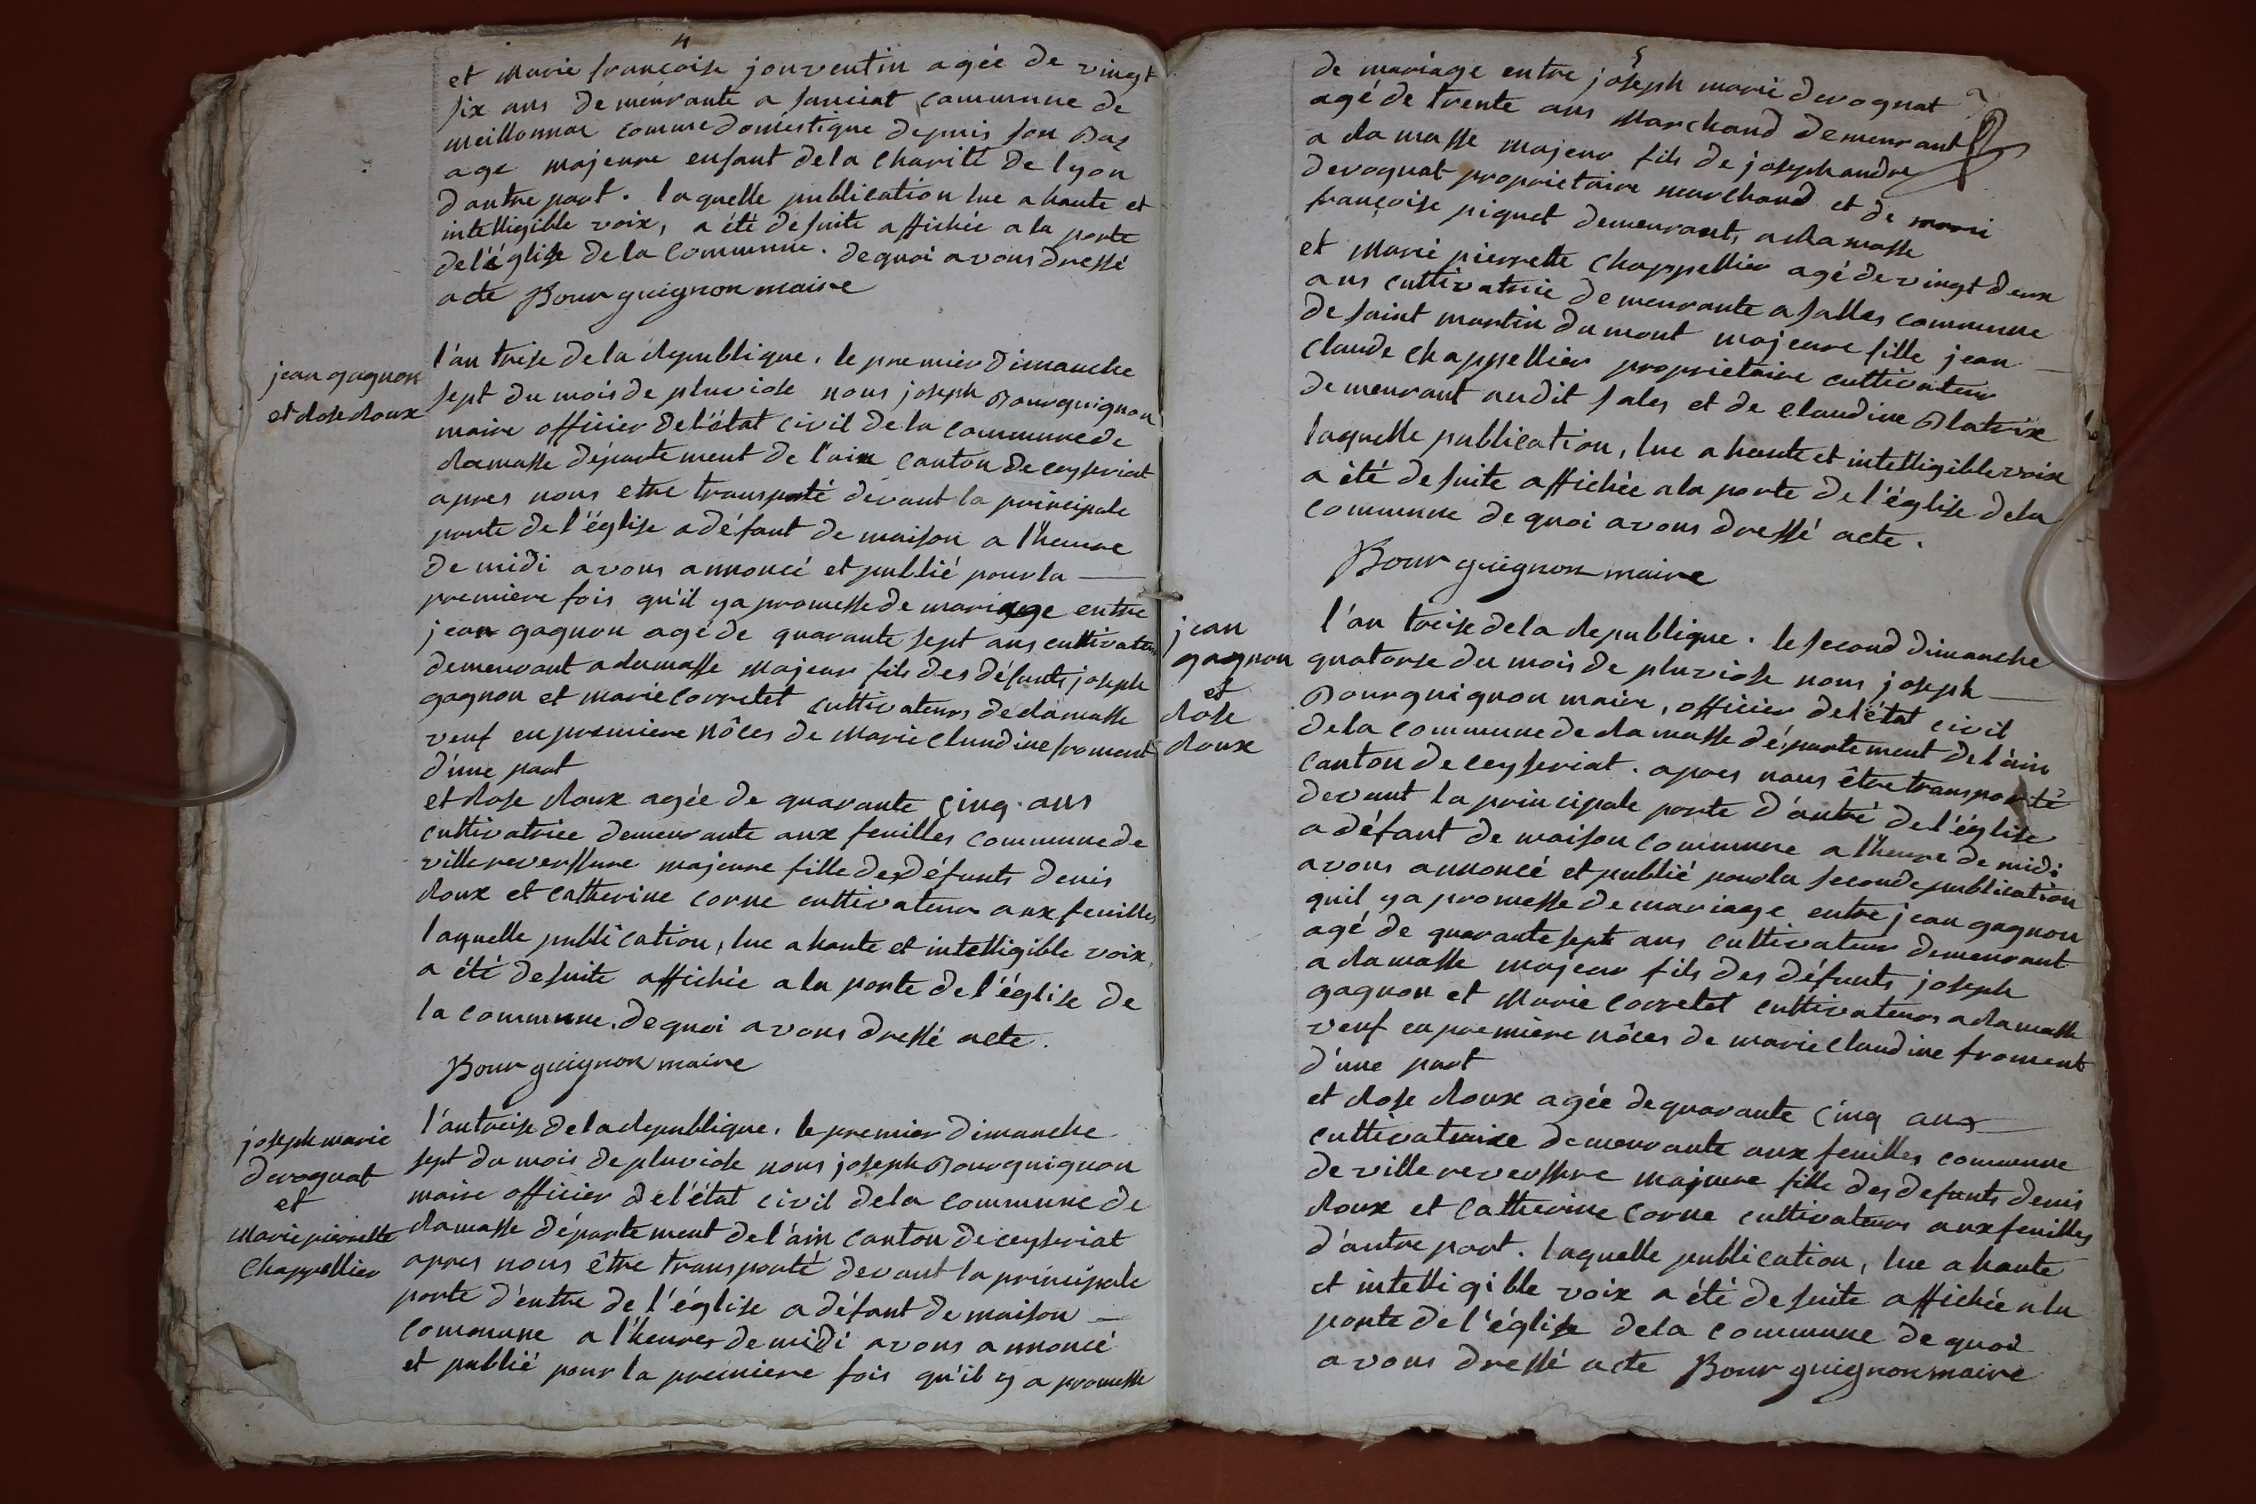 4
et Marie françoise jouventin agéé de vingt
six ans demeurante a sanciat commune de
meillonnaz comme doméstique depuis son Bas
age majeure enfant dela charité de lyon
dautre part. laquelle publication lue a haute et
intelligible voix, a été desuite affichée a la porte
del'église dela commune. dequoi avons dressé
acte Bourguignon maire
jean gagnon
et Rose Roux
l'an treise dela Republique, le premier dimanche
sept du mois de pluviose nous joseph Bourguignon
maire officier del'état civil dela commune de
Ramasse département de l'ain canton de ceyseriat
apres nous etre transporté devant la principale
porte de l'église a défaut de maison a l'heure
de midi avons annoncé et publié pour la
première fois qu'il ya promesse de mariage entre
jean gagnon agé de quarante sept ans cultivateur
demeurant a Ramasse majeur fils des défunts joseph
gagnon et marie corretet cultivateurs de Ramasse
veuf en premiere nôces de marie claudine froment
d'une part
et Rose Roux agée de quarante cinq ans
cultivatrice demeurante aux feuilles commune de
villereverssure majeure fille des défunts denis
Roux et catherine corne cultivateurs aux feuilles
laquelle publication, lue a haute et intelligible voix,
a été desuite affichée a la porte de l'église de
la commune. dequoi avons dressé acte.
Bourguignon maire
joseph marie
devognat
et
Marie pierrette
Chappellier
l'an treise dela Republique, le premier dimanche
sept du mois de pluviose nous joseph Bourguignon
maire officier de l'état civil dela commune de
Ramasse département de l'ain canton de ceyseriat
apres nous être transporté devant la principale
porte d'entre de l'église a défaut de maison
commune a l'heures de midi avons annoncé
et publié pour la premiere fois qu'il y a promesse
5
de mariage entre joseph marie devognat
agé de trente ans Marchand demeurant
a Ramasse majeur fils de joseph andre
devognat proprietaire marchand et de marie
françoise piquet demeurants a Ramasse
et Marie pierrette Chappellier agé de vingt deux
ans cultivatrice demeurante a salles commune
de saint martin du mont majeure fille jean
claude chappellier proprietaire cultivateur
demeurant audit sales et de claudine Platrix
laquelle publication, lue a haute et intelligible voix
a été desuite affichée a la porte de l'église dela
commune de quoi avons dressé acte.
Bourguignon maire
jean
gagnon
et
Rose
Roux
l'an treise dela Republique. le second dimanche
quatorse du mois de pluviose nous joseph
Bourguignon maire, officier del'état civil
dela commune de Ramasse département de l'ain
canton de ceyseriat. apres nous être transporté
devant la principale porte d'entré de l'église
a défaut de maison commune a l'heure de midi
avons annoncé et publié pour la seconde publication
quil ya promesse de mariage entre jean gagnon
agé de quarante sept ans cultivateur demeurant
a Ramasse majeur fils des défunts joseph
gagnon et Marie corretet cultivateurs a Ramasse
veuf en première nôces de marie claudine froment
d'une part
et Rose Roux agée de quarante cinq ans
cultivatrice demeurante aux feuilles commune
de villereverssure majeure fille des defunts denis
Roux et catherine corne cultivateurs aux feuilles
d'autre part. laquelle publication, lue a haute
et intelligible voix a été desuite affichée a la
porte de l'église dela commune de quoi
avons dressé acte Bourguignon maire